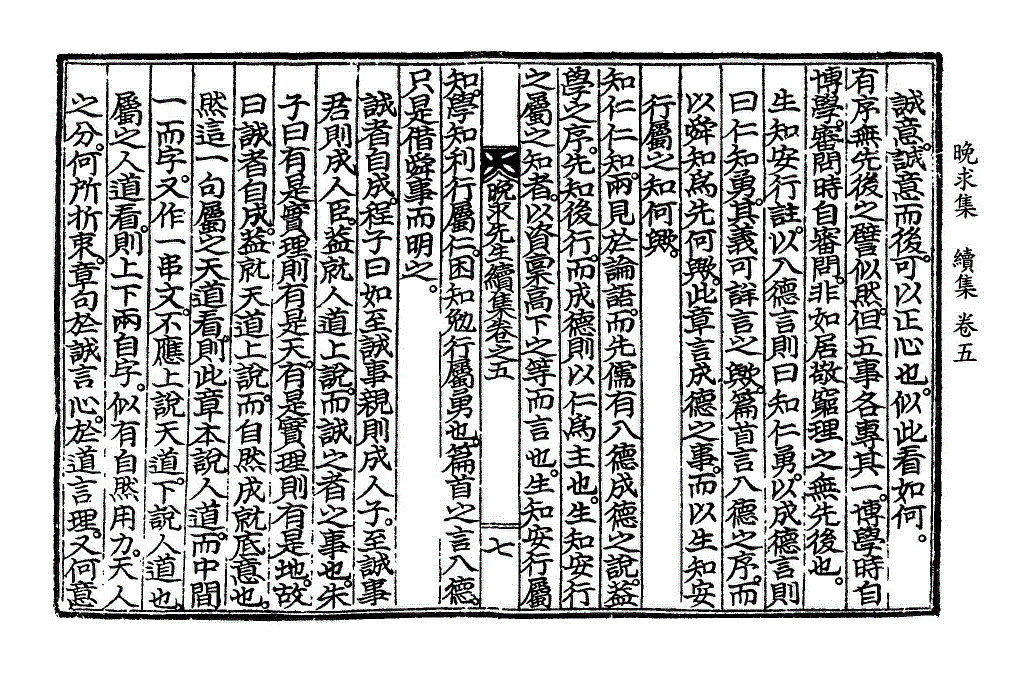 晩求集　續集　卷五
誠意。誠意而後。可以正心也。似此看如何。
有序無先後之譬似然。但五事各專其一。博學時自
博學。審問時自審問。非如居敬窮理之無先後也。
生知安行註。以入德言則曰知仁勇。以成德言則
曰仁知勇。其義可詳言之歟。篇首言入德之序。而
以舜知爲先何歟。此章言成德之事。而以生知安
行屬之知何歟。
知仁仁知。兩見於論語。而先儒有入德成德之說。益
學之序。先知後行。而成德則以仁爲主也。生知安行
之屬之知者。以資稟高下之等而言也。生知安行屬
晩求先生續集卷之五
七
知。學知利行屬仁。困知勉行屬勇也。篇首之言入德。
只是借舜事而明之。
誠者自成。程子曰如至誠事親則成人子。至誠事
君則成人臣。益就人道上說。而誠之者之事也。朱
子曰有是實理則有是天。有是實理則有是地。故
曰誠者自成。益就天道上說。而自然成就底意也。
然這一句屬之天道看。則此章本說人道。而中間
一而字。又作一串文。不應上說天道。下說人道也。
屬之人道看。則上下兩自字。似有自然用力。天人
之分。何所折衷。章句於誠言心。於道言理。又何意